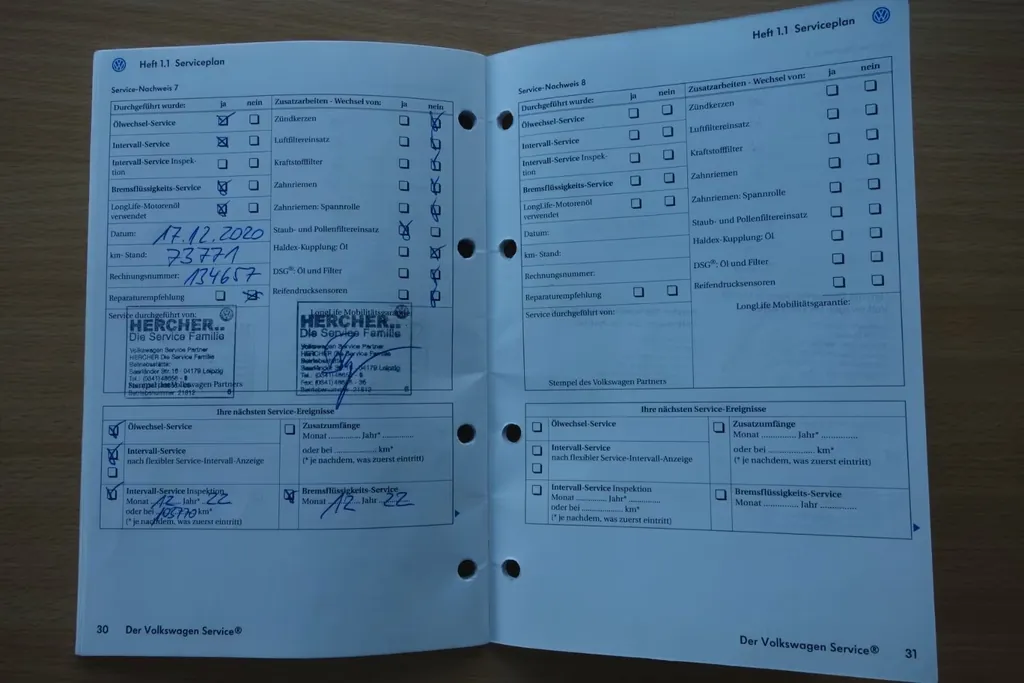 Heft 1.1 Serviceplan
Service-Nachweis 7
Durchgeführt wurde: ja nein
Ölwechsel-Service
Intervall-Service
Intervall-Service Inspek-
tion
Bremsflüssigkeits-Service
LongLife-Motorenöl
verwendet
Datum: 17.12.2020
km- Stand: 73771
Rechnungsnummer: 134657
Reparaturempfehlung
Service durchgeführt von:
HERCHER..
Die Service Familie
Volkswagen Service Partner
HERCHER Die Service Familie
04179 Leipzig
Stempel des Volkswagen Partners
Zusatzarbeiten - Wechsel von: ja nein
Zündkerzen
Luftfiltereinsatz
Kraftstofffilter
Zahnriemen
Zahnriemen: Spannrolle
Staub- und Pollenfiltereinsatz
Haldex-Kupplung: Öl
DSG®: Öl und Filter
Reifendrucksensoren
LongLife Mobilitätsgarantie:
HERCHER..
Die Service Familie
Volkswagen Service Partner
HERCHER Die Service Familie
04179 Leipzig
Ihre nächsten Service-Ereignisse
Ölwechsel-Service
Intervall-Service
nach flexibler Service-Intervall-Anzeige
Intervall-Service Inspektion
Monat 12 Jahr* 22
oder bei 103770 km*
(* je nachdem, was zuerst eintritt)
Zusatzumfänge
Monat .............. Jahr* .............
oder bei .................. km*
(* je nachdem, was zuerst eintritt)
Bremsflüssigkeits-Service
Monat 12 Jahr 22
30 Der Volkswagen Service®
Heft 1.1 Serviceplan
Service-Nachweis 8
Durchgeführt wurde: ja nein
Ölwechsel-Service
Intervall-Service
Intervall-Service Inspek-
tion
Bremsflüssigkeits-Service
LongLife-Motorenöl
verwendet
Datum:
km- Stand:
Rechnungsnummer:
Reparaturempfehlung
Service durchgeführt von:
Stempel des Volkswagen Partners
Zusatzarbeiten - Wechsel von: ja nein
Zündkerzen
Luftfiltereinsatz
Kraftstofffilter
Zahnriemen
Zahnriemen: Spannrolle
Staub- und Pollenfiltereinsatz
Haldex-Kupplung: Öl
DSG®: Öl und Filter
Reifendrucksensoren
LongLife Mobilitätsgarantie:
Ihre nächsten Service-Ereignisse
Ölwechsel-Service
Intervall-Service
nach flexibler Service-Intervall-Anzeige
Intervall-Service Inspektion
Monat ............. Jahr* ............
oder bei ................. km*
(* je nachdem, was zuerst eintritt)
Zusatzumfänge
Monat .............. Jahr* ...............
oder bei .................. km*
(* je nachdem, was zuerst eintritt)
Bremsflüssigkeits-Service
Monat .............. Jahr ..............
Der Volkswagen Service® 31